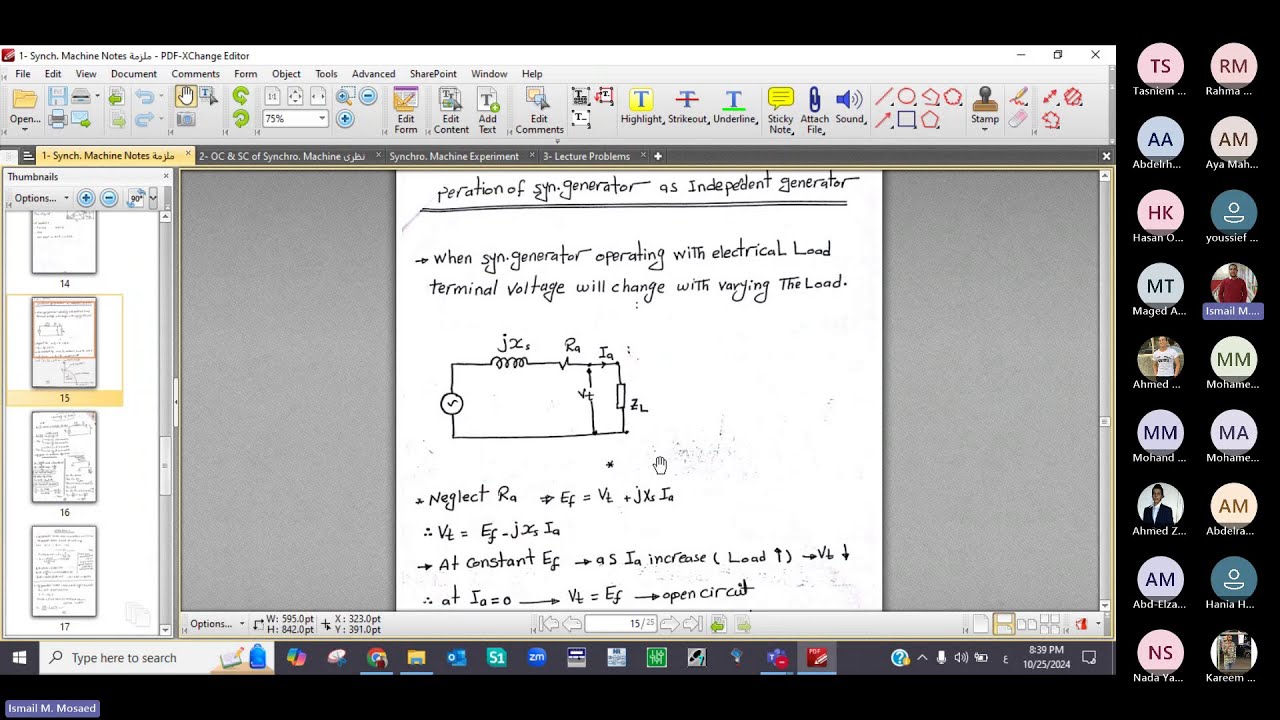 1- Synch. Machine Notes ملزمة - PDF-XChange Editor
File Edit View Document Comments Form Object Tools Advanced SharePoint Window Help
Open... 75% Edit Form Edit Content Add Text Edit Comments Highlight Strikeout Underline Sticky Note Attach File Sound Stamp
1- Synch. Machine Notes ملزمة 2- OC & SC of Synchro. Machine نظرى Synchro. Machine Experiment 3- Lecture Problems
Thumbnails
Options... 90°
14
15
16
17
peration of syn.generator as Indepedent generator
→ when syn.generator operating with electrical Load
terminal voltage will change with varying The Load.
jxs Ra Ia
Vt ZL
*
* Neglect Ra ⇒ Ef = Vt + jxs Ia
∴ Vt = Ef - jxs Ia
→ At constant Ef → as Ia increase ( Load ↑ ) → Vt ↓
∴ at Ia=0 → Vt = Ef → open circuit
Options... W: 595.0pt X: 323.0pt
H: 842.0pt Y: 391.0pt
15 / 25
Type here to search
8:39 PM
10/25/2024
TS RM
Tasniem ... Rahma ...
AA AM
Abdelrh... Aya Mah...
HK
Hasan O... youssef ...
MT
Maged A... Ismail M....
MM
Ahmed ... Mohame...
MM MA
Mohand ... Mohame...
AM
Ahmed Z... Abdelra...
AM
Abd-Elza... Hania H...
NS
Nada Ya... Kareem ...
Ismail M. Mosaed